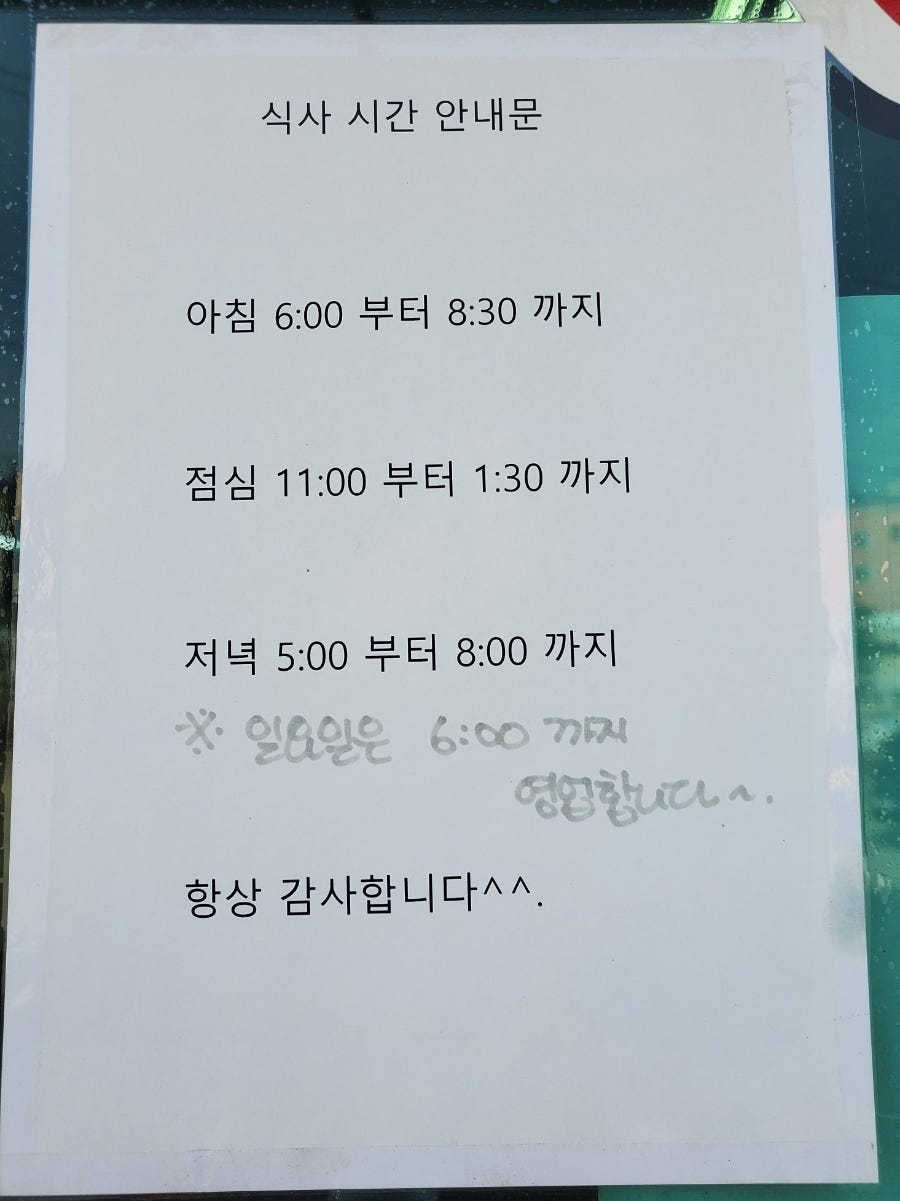 식사 시간 안내문
아침 6:00 부터 8:30 까지
점심 11:00 부터 1:30 까지
저녁 5:00 부터 8:00 까지
※ 일요일은 6:00 까지
영업합니다~.
항상 감사합니다^^.